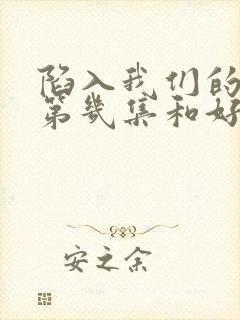 陷入我们的
第几集和好
安之余